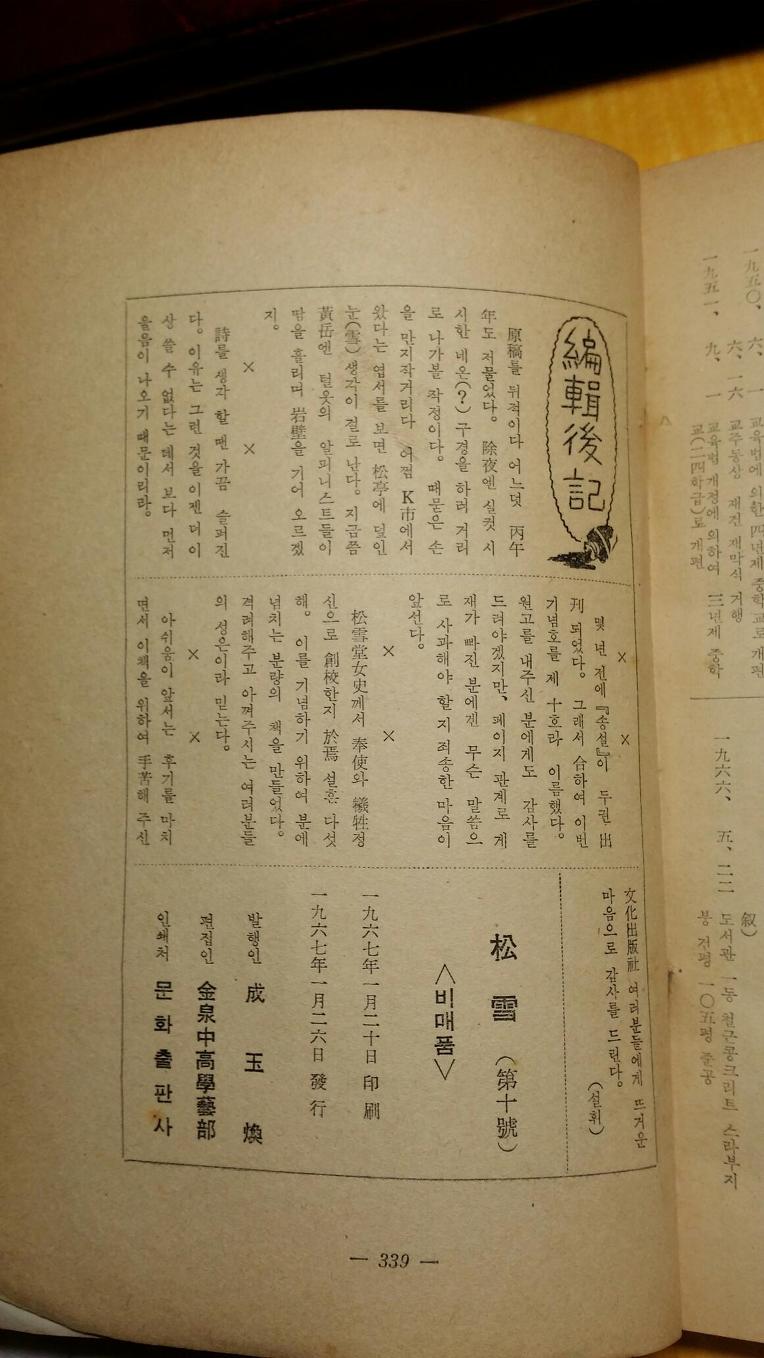 編輯後記
原稿를 뒤적이다 어느덧 丙午
年도 저물었다. 除夜엔 실컷 시
시한 네온(?) 구경을 하러 거리
로 나가볼 작정이다. 때묻은 손
을 만지작거리다 어쩜 K市에서
왔다는 엽서를 보면 松亭에 덮인
눈(雪) 생각이 절로 난다. 지금쯤
黃岳엔 털옷의 알피니스트들이
땀을 흘리며 岩壁을 기어 오르겠
지.
× ×
詩를 생각 할 땐 가끔 슬퍼진
다. 이유는 그런 것을 이젠 더 이
상 쓸 수 없다는 데서 보다 먼저
울음이 나오기 때문이리라.
× ×
몇 년 전에 『송설』이 두권 出
刊 되었다. 그래서 合하여 이번
기념호를 제 十호라 이름했다.
원고를 내주신 분에게도 감사를
드려야겠지만, 페이지 관계로 게
재가 빠진 분에겐 무슨 말씀으
로 사과해야 할 지 죄송한 마음이
앞선다.
× ×
松雪堂女史께서 奉使와 犧牲정
신으로 創校한지 於焉 설흔 다섯
해. 이를 기념하기 위하여 분에
넘치는 분량의 책을 만들었다.
격려해주고 아껴주시는 여러분들
의 성은이라 믿는다.
× ×
아쉬움이 앞서는 후기를 마치
면서 이책을 위하여 手苦해 주신
文化出版社 여러분들에게 뜨거운
마음으로 감사를 드린다.
(설휘)
松雪 (第十號)
<비매품>
一九六七年 一月 二十日 印刷
一九六七年 一月 二六日 發行
발행인 成玉煥
편집인 金泉中高學藝部
인쇄처 문화출판사
— 339 —
一九五〇、六、一 교육법에 의한 四년제 중학교로 개편
六、二六 교주동상 재건 재막식 거행
一九五一、九、一 교육법 개정에 의하여 三년제 중학
교(二四학급)로 개편
一九六六、五、二二
叙)
도서관 一동 철근콩크리트 스라부지
붕 건평 一〇五평 준공